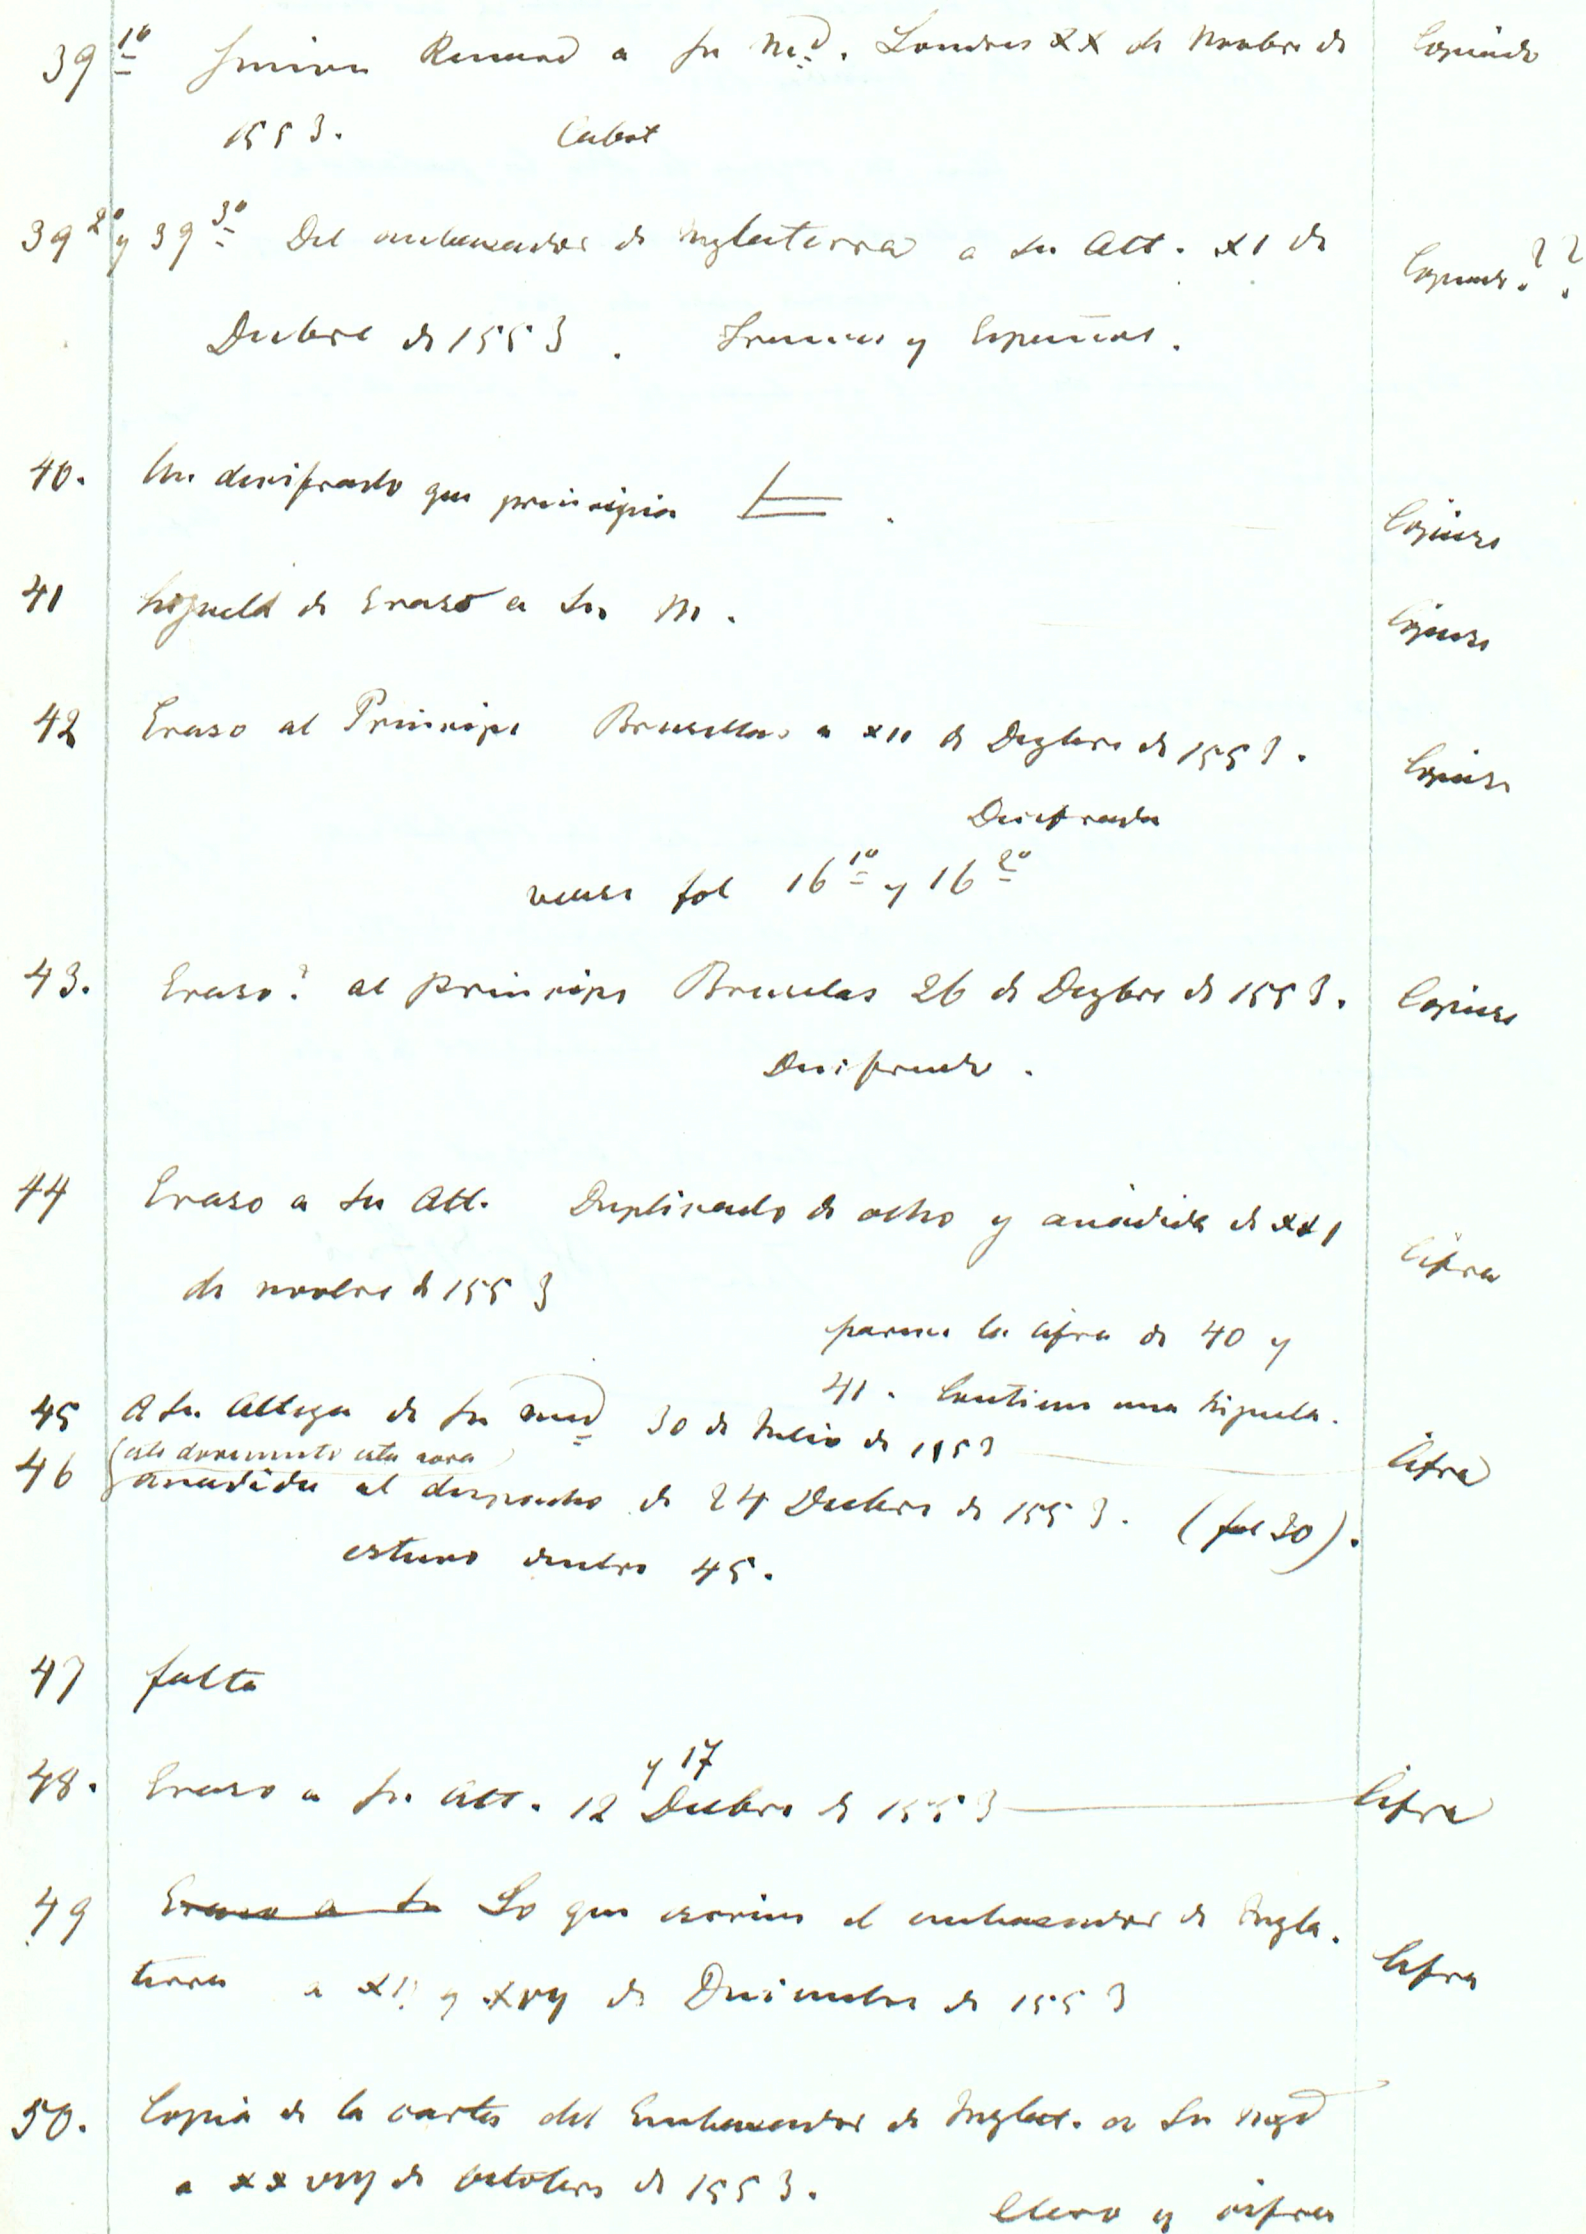 39 1º Simon Renard a su Md. Londres XX de Novbre de Copiado
1553. Cabot
39 2º y 39 3º Del embaxador de Inglaterra a su Alt. XI de
Copiado. ??
Diebre de 1553. Frances y Español.
40. Un descifrado que principia
Copiado
41 higuela de Eraso a Su M. Copiado
42 Eraso al Principe Bruselas a XII de Dezbre de 1553. Copiado
Descifrada
vease fol 16 1º y 16 2º
43. Eraso? al principe Bruselas 26 de Dezbre de 1553. Copiado
Descifrado.
44 Eraso a Su Alt. Duplicado de ocho y añadida de XXI
Cifra
de novbre de 1553
parece la cifra de 40 y
41. Contiene una higuela.
45 A Su Alteza de Su Mad 30 de Julio de 1553 Cifra
este documento esta
46 añadida al despacho de 24 Diebre de 1553. (fol 30).
estuvo dentro 45.
47 falta
y 17
48. Eraso a Su Alt. 12 Diebre de 1553 Cifra
49 Eraso a Su Lo que escrive el embaxador de Ingla-
terra a XII y XVII de Diciembre de 1553 Cifra
50. Copia de la carta del Embaxador de Inglat. a Su Magd
a XXVIII de octubre de 1553.
Claro y cifra